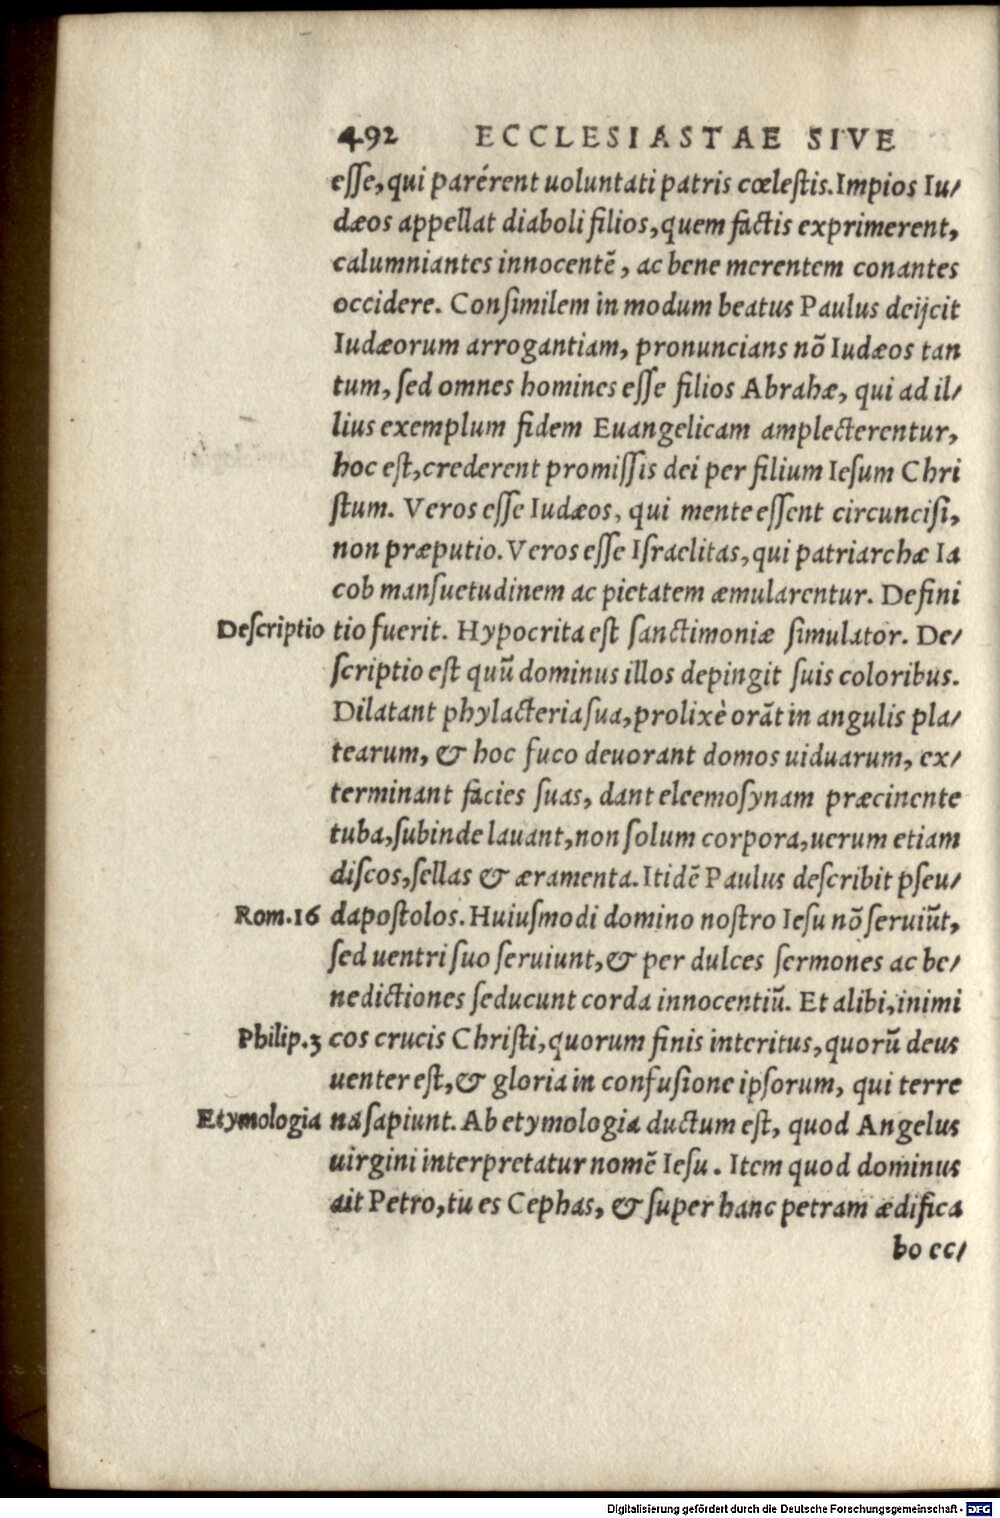 492 ECCLESIASTAE SIVE
eſſe, qui parérent uoluntati patris cœleſtis. Impios Iu/
dæos appellat diaboli filios, quem factis exprimerent,
calumniantes innocentē, ac bene merentem conantes
occidere. Conſimilem in modum beatus Paulus deijcit
Iudæorum arrogantiam, pronuncians nō Iudæos tan
tum, ſed omnes homines eſſe filios Abrahæ, qui ad il/
lius exemplum fidem Euangelicam amplecterentur,
hoc eſt, crederent promiſſis dei per filium Ieſum Chri
ſtum. Veros eſſe Iudæos, qui mente eſſent circunciſi,
non præputio. Veros eſſe Iſraelitas, qui patriarchæ Ia
cob manſuetudinem ac pietatem æmularentur. Defini
Deſcriptio tio fuerit. Hypocrita eſt ſanctimoniæ ſimulator. De/
ſcriptio eſt quū dominus illos depingit ſuis coloribus.
Dilatant phylacteria ſua, prolixè orāt in angulis pla/
tearum, & hoc fuco deuorant domos uiduarum, ex/
terminant facies ſuas, dant eleemoſynam præcinente
tuba, ſubinde lauant, non ſolum corpora, uerum etiam
diſcos, ſellas & æramenta. Itidē Paulus deſcribit pſeu/
Rom.16 dapoſtolos. Huiuſmodi domino noſtro Ieſu nō ſeruiūt,
ſed uentri ſuo ſeruiunt, & per dulces ſermones ac be/
nedictiones ſeducunt corda innocentiū. Et alibi, inimi
Philip.3 cos crucis Chriſti, quorum finis interitus, quorū deus
uenter eſt, & gloria in confuſione ipſorum, qui terre
Etymologia na ſapiunt. Ab etymologia ductum eſt, quod Angelus
uirgini interpretatur nomē Ieſu. Item quod dominus
ait Petro, tu es Cephas, & ſuper hanc petram ædifica
bo ec/
Digitalisierung gefördert durch die Deutsche Forschungsgemeinschaft - DFG